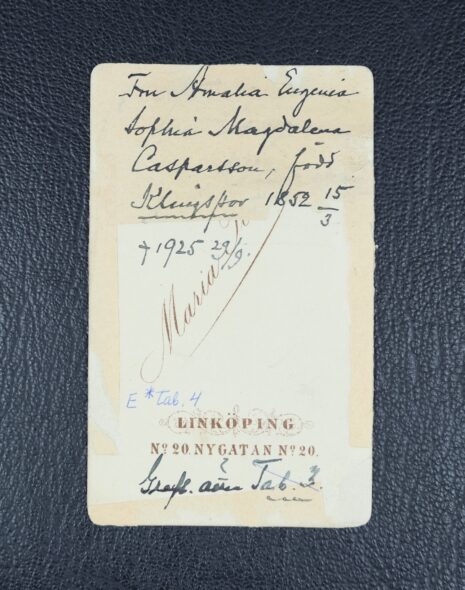 Fru Amalia Eugenia
Sophia Magdalena
Casparsson, född
Klingspor 1852 15/3
† 1925 29/9.
Maria
E *Tab. 4
LINKÖPING
No 20. NYGATAN No 20.
Grefl. ätten Tab. 3.